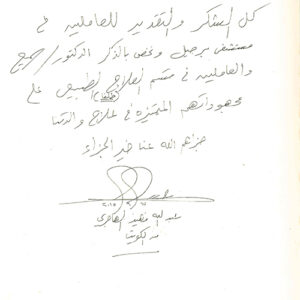 كل الشكر والتقدير للعاملين في
مستشفى برجيل ونخص بالذكر الدكتور /
والعاملين في قسم العلاج الطبيعي على
مجهوداتهم المتميزة في علاج
جزاهم الله عنا خير الجزاء
عبدالله الهاجري
من الكويت